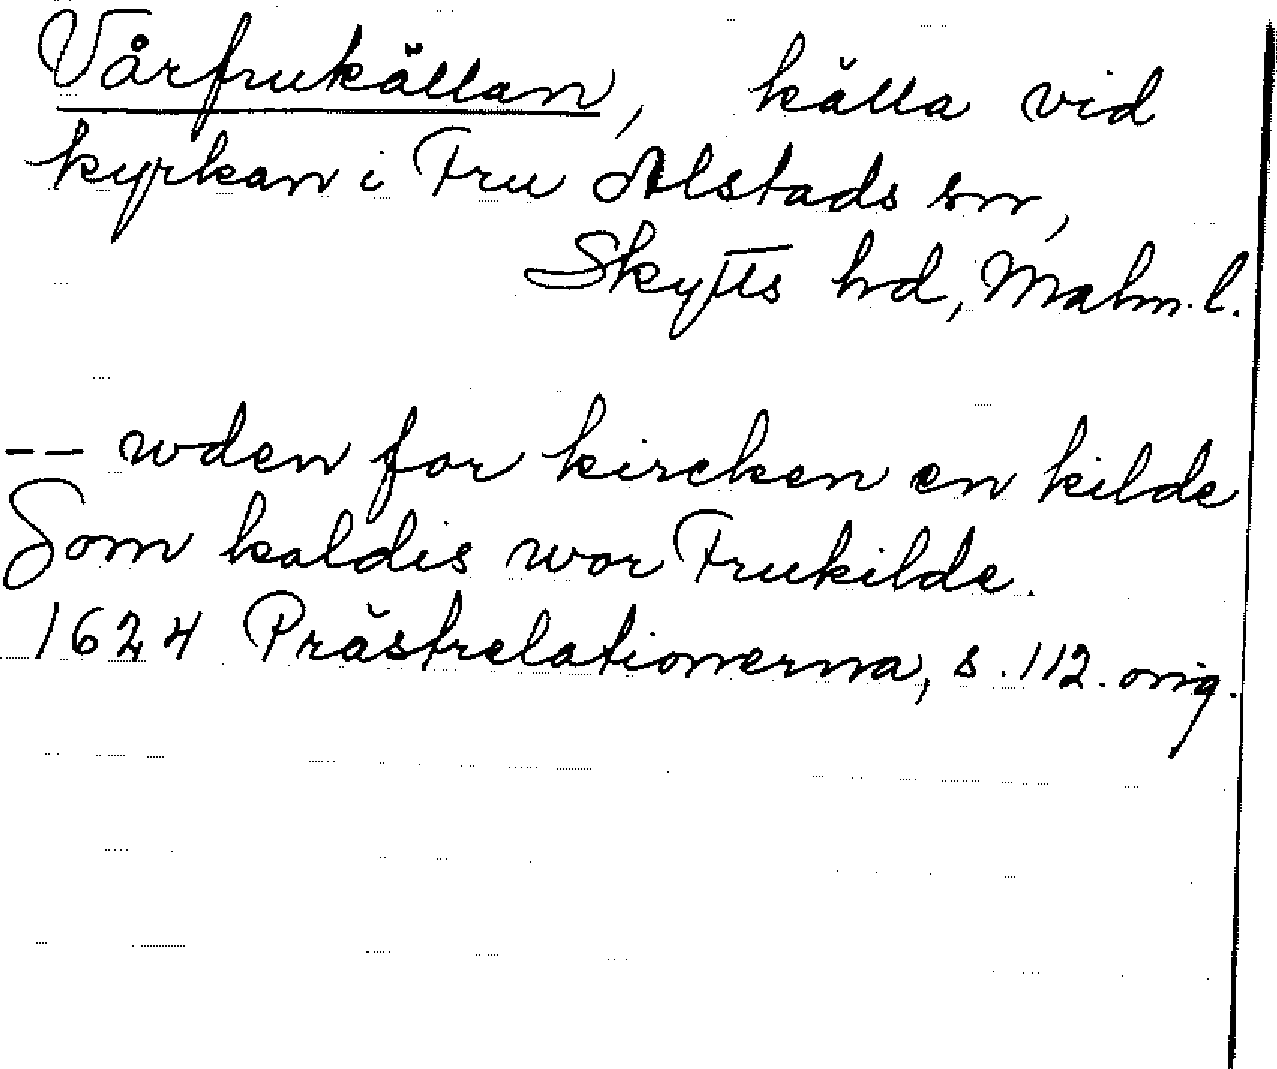 Vårfrukällan, källa vid
kyrkan i Fru Alstads sn,
Skytts hd, Malm. l.
-- wden for kircken en kilde
Som kaldis wor Frukilde.
1624 Prästrelationerna, s. 112. orig.